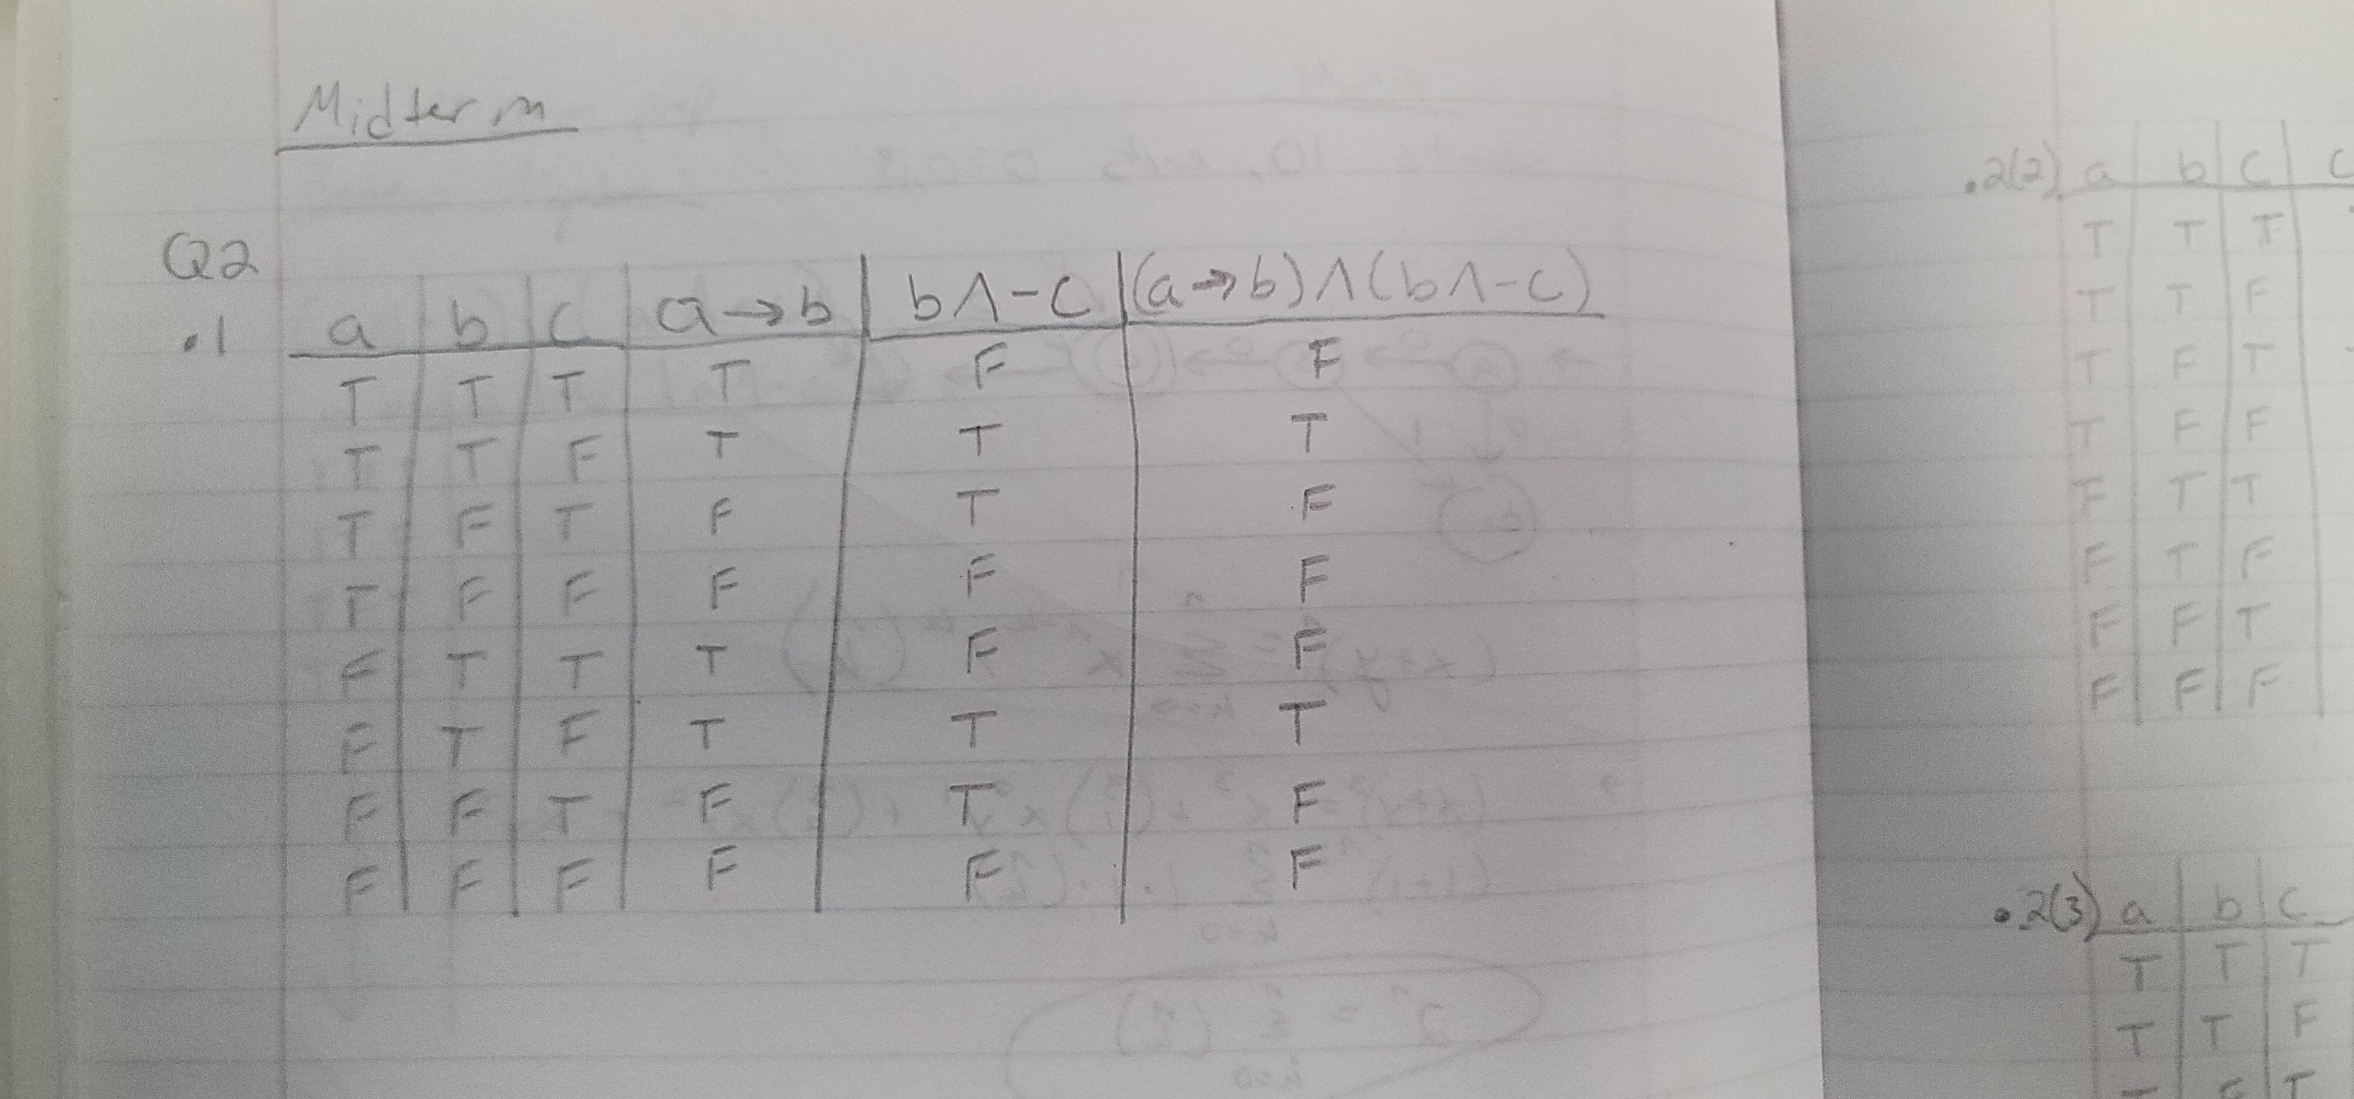 Midterm
Q2
.1 a b c a→b b∧-c (a→b)∧(b∧-c)
T T T T F F
T T F T T T
T F T F T F
T F F F F F
F T T T F F
F T F T T T
F F T F T F
F F F F F F
.2(2) a b c
T T T
T T F
T F T
T F F
F T T
F T F
F F T
F F F
.2(3) a b c
T T T
T T F
T F T